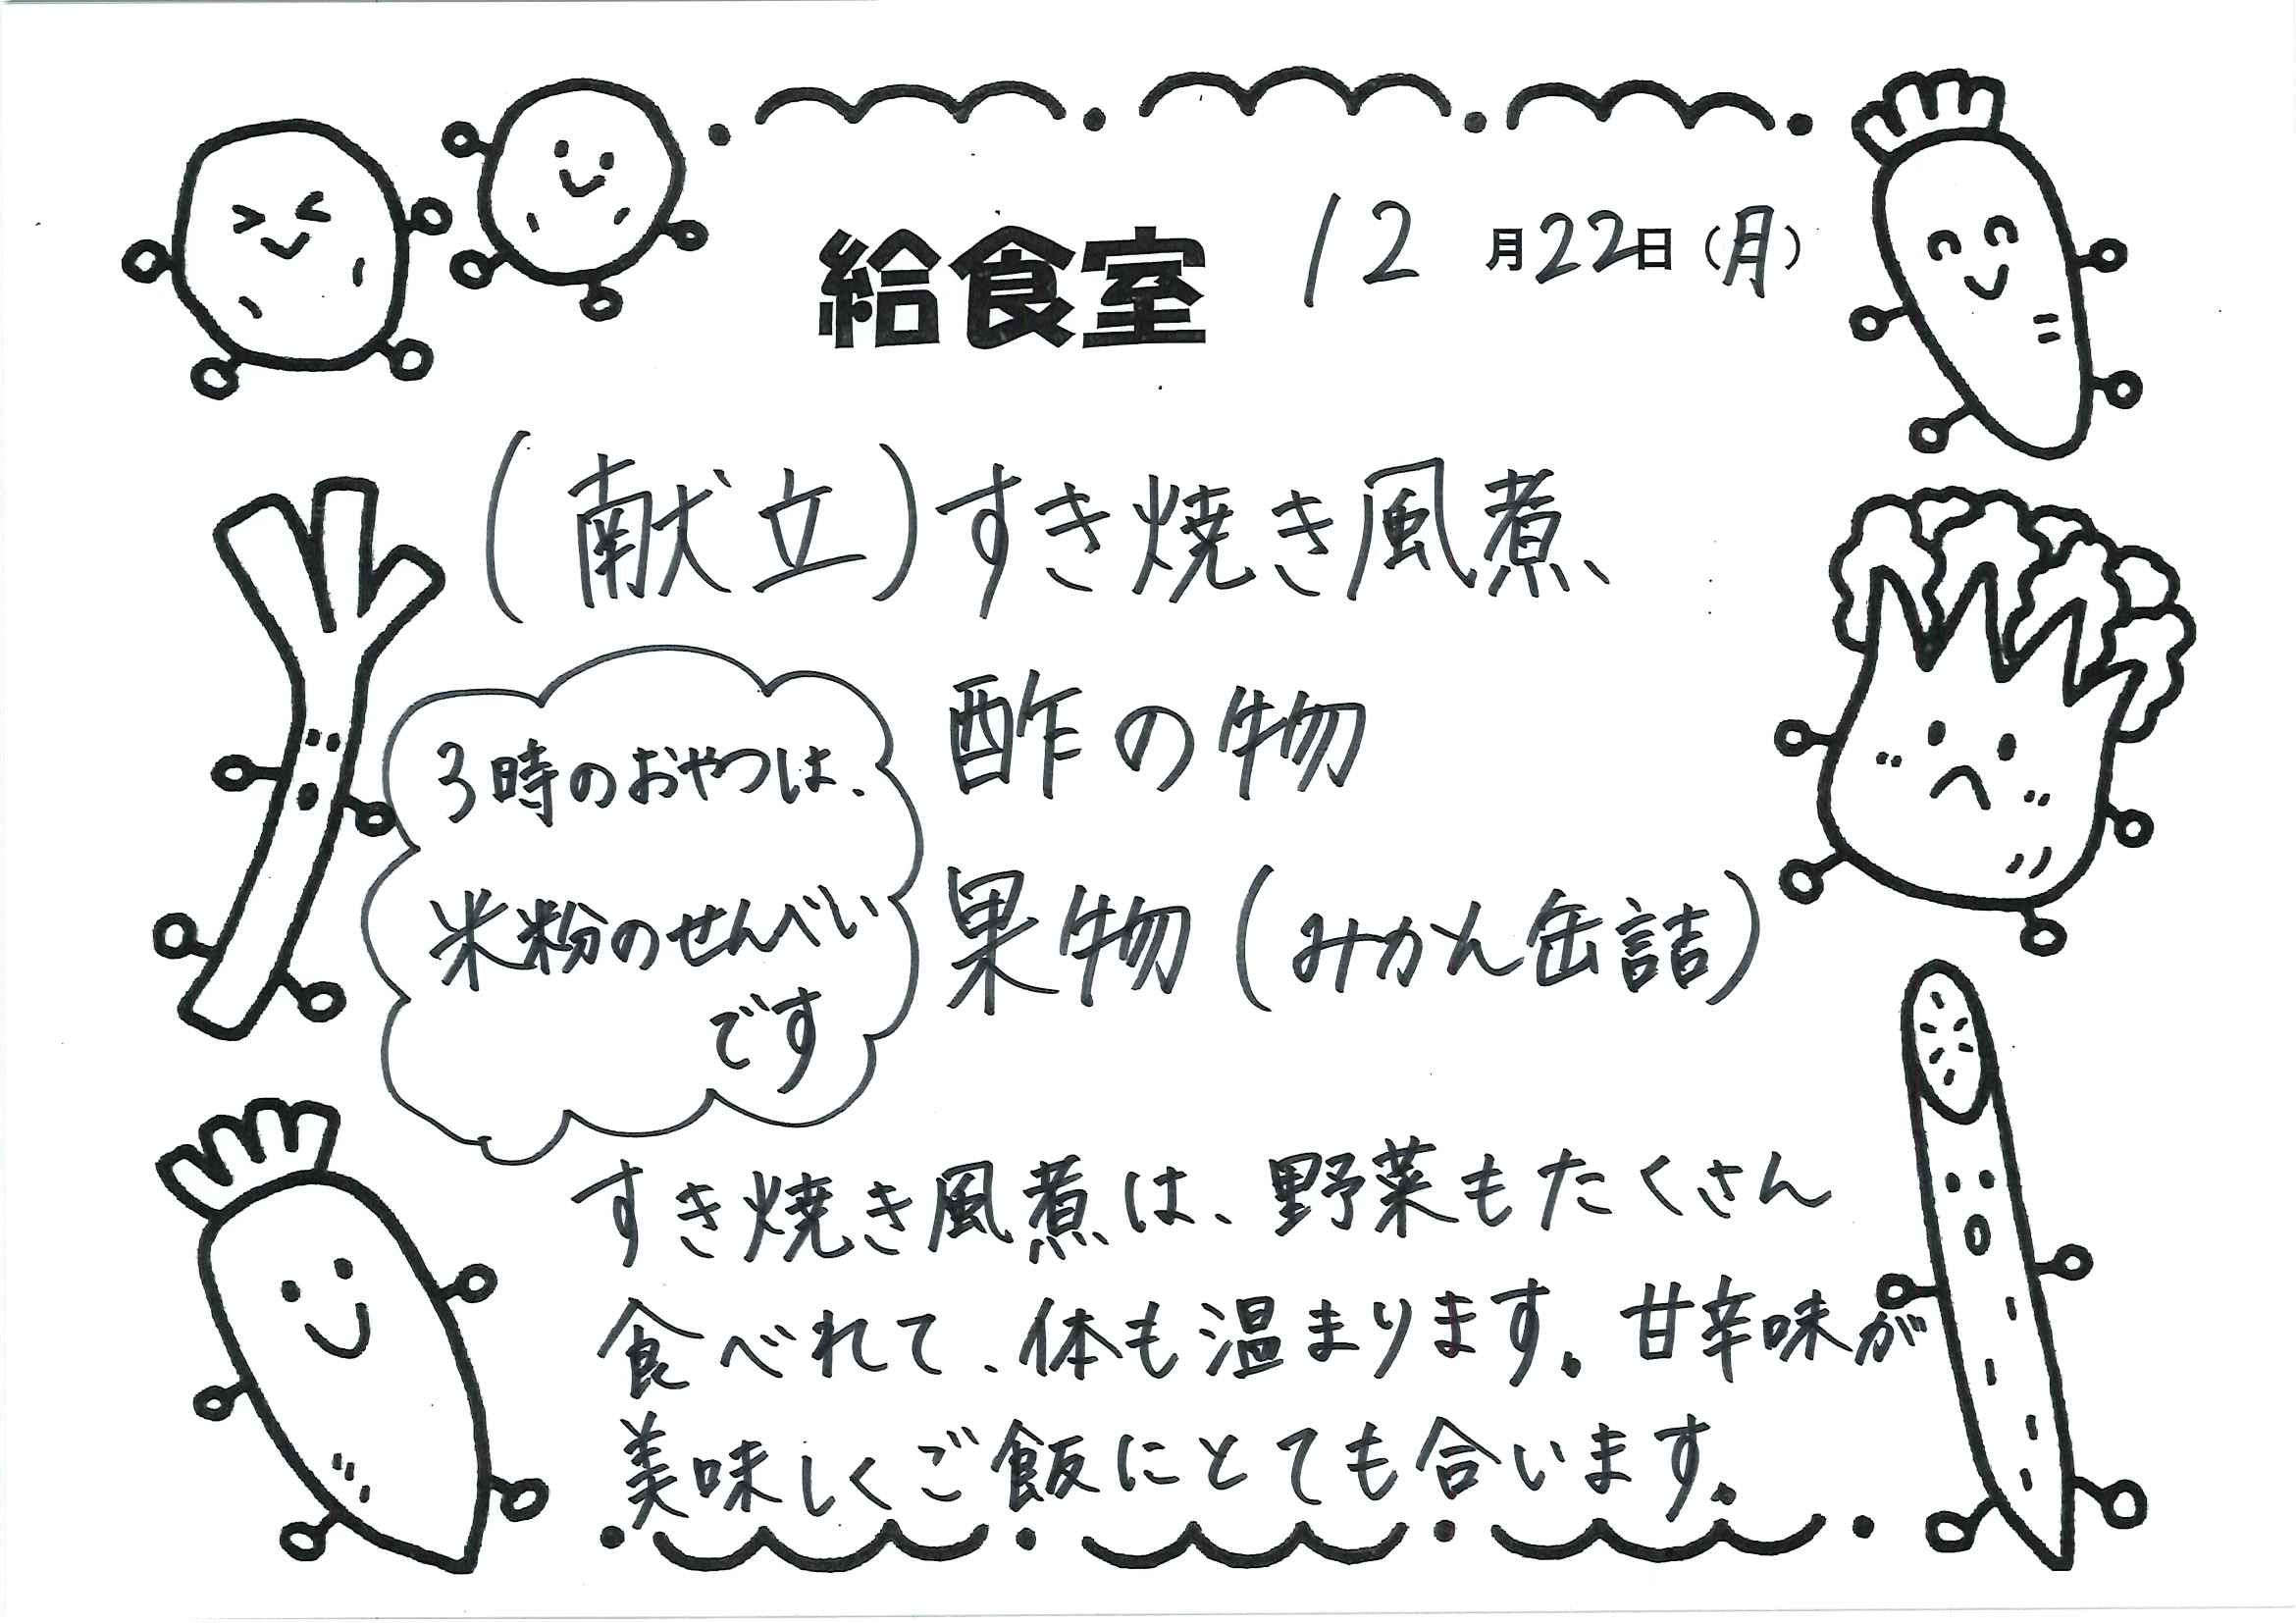 給食室 12月22日（月）
（献立）すき焼き風煮、
酢の物
果物（みかん缶詰）
3時のおやつは、
米粉のせんべい
です
すき焼き風煮は、野菜もたくさん
食べれて、体も温まります。甘辛味が
美味しくご飯にとても合います。